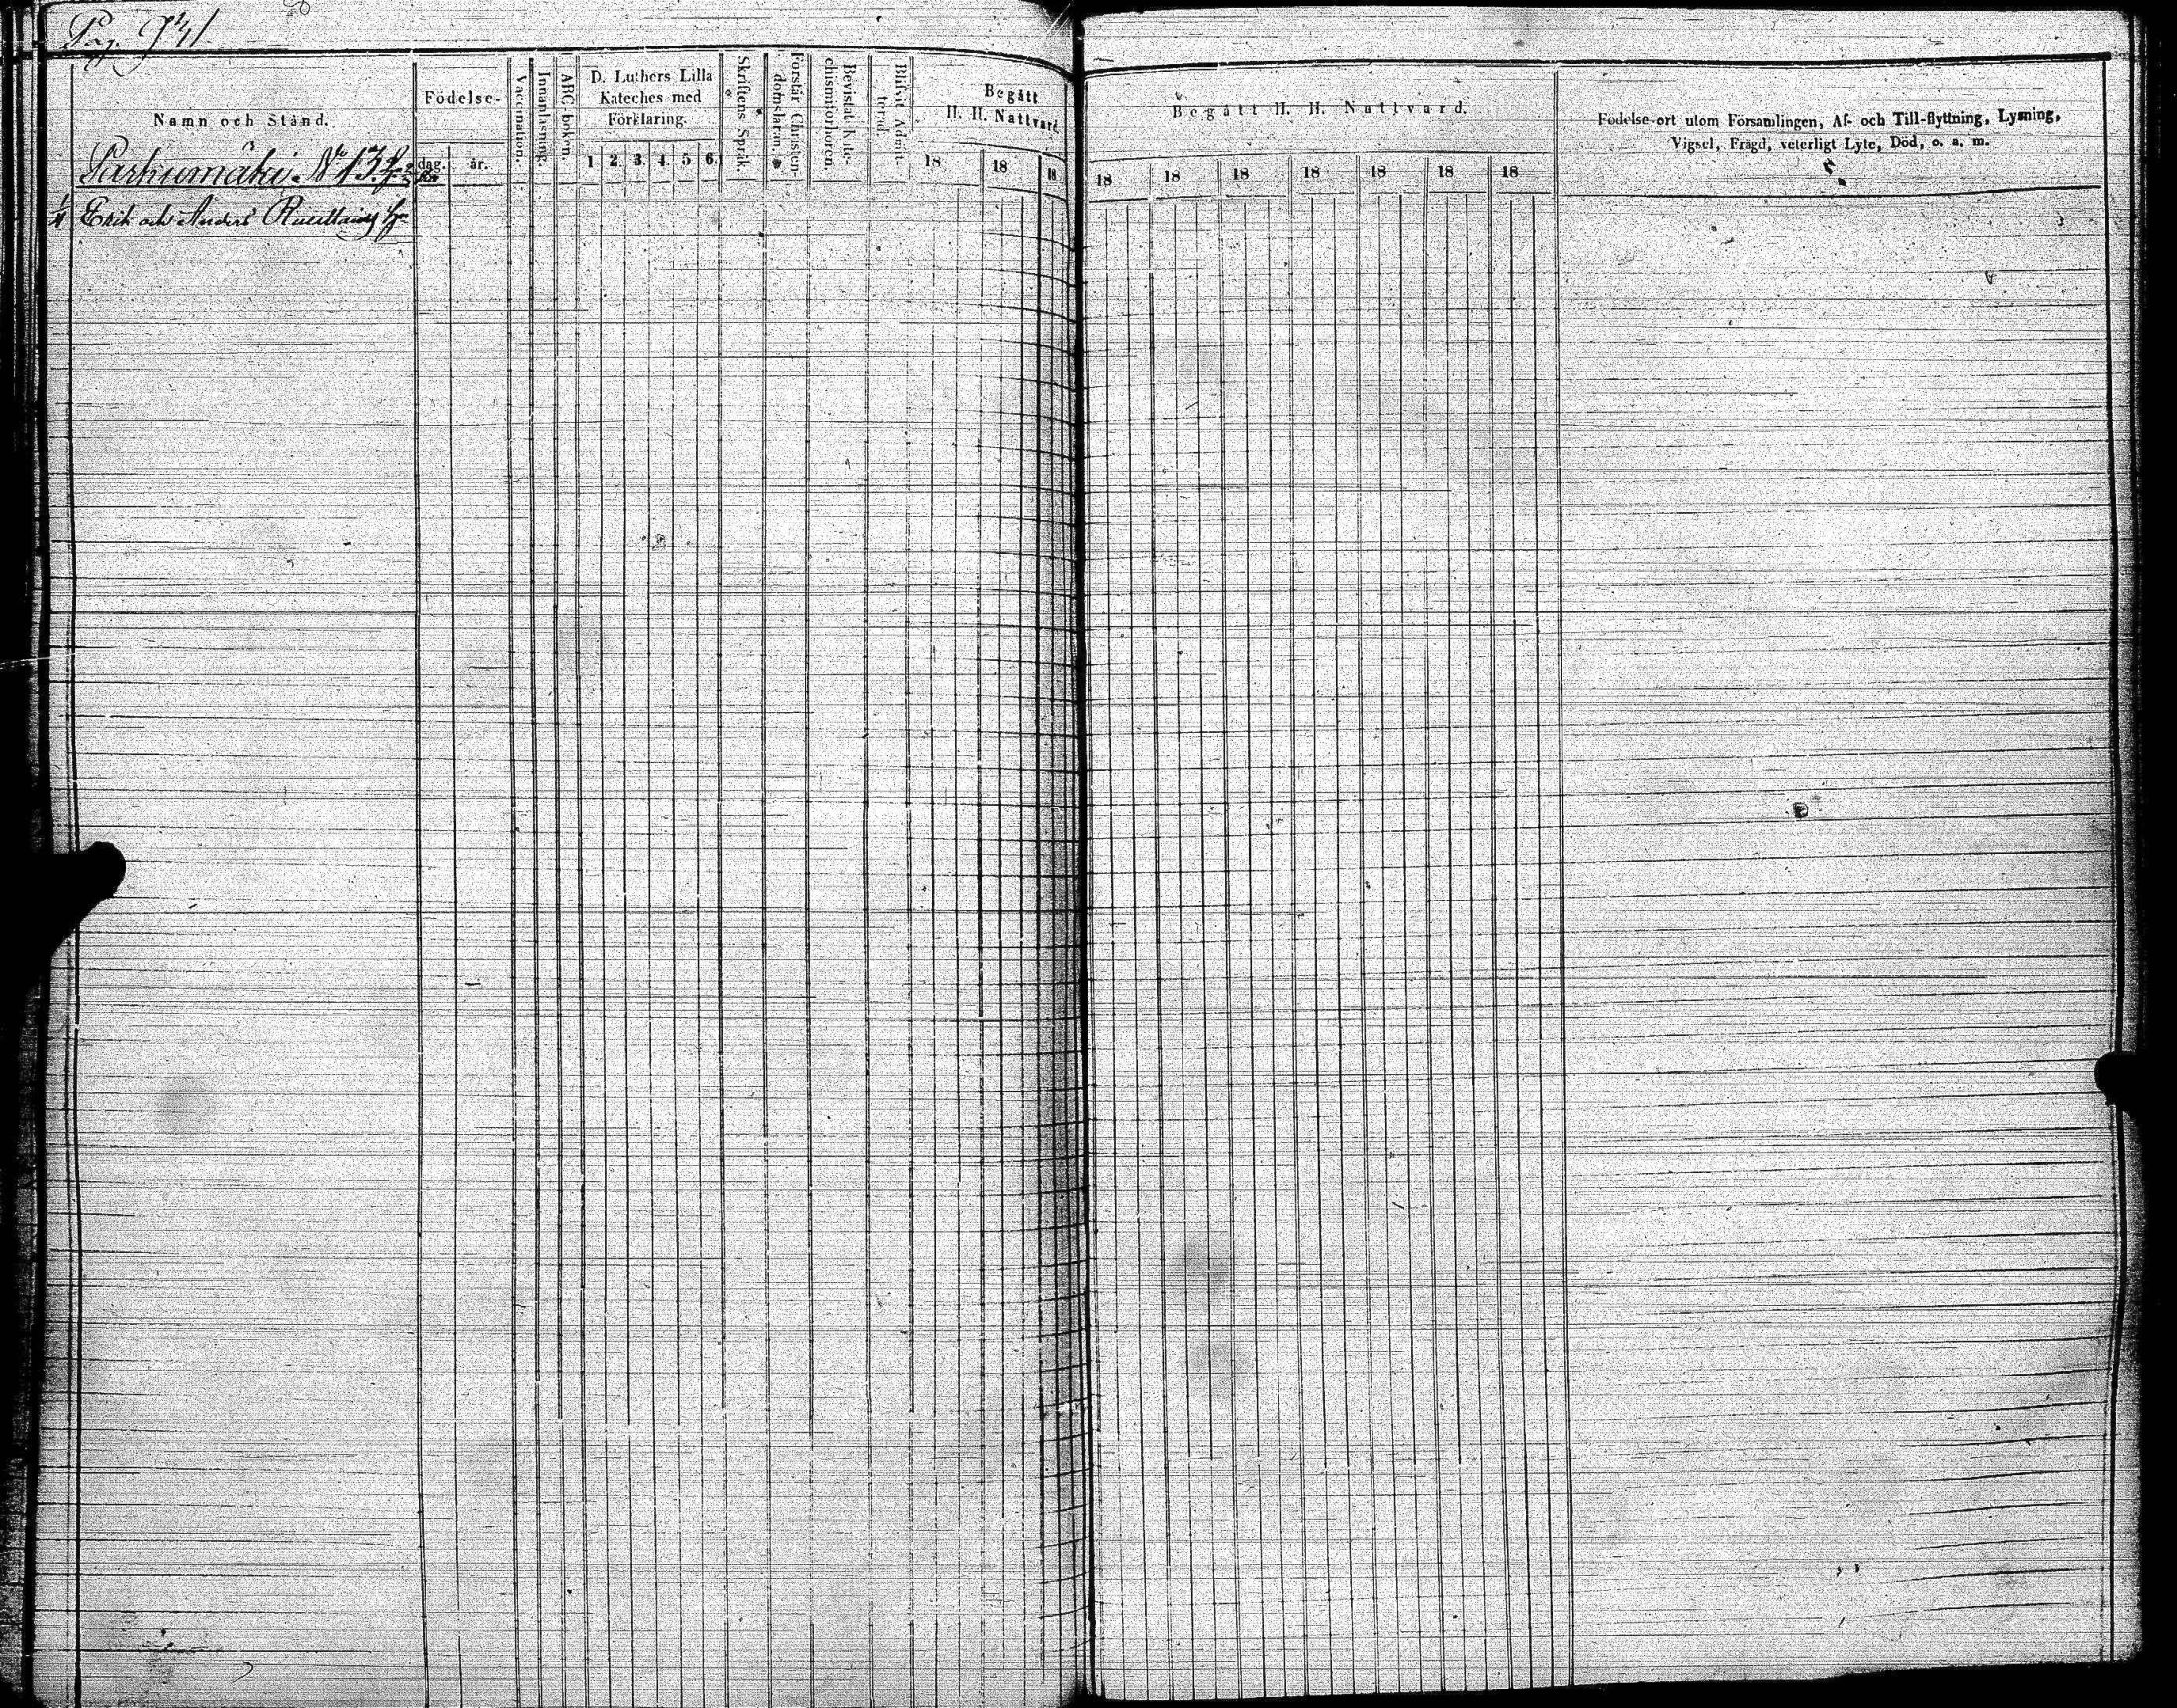 Pag. 931
Namn och Stånd.
Födelse-
dag.
år.
Vaccination.
Innanläsning.
ABC boken.
D. Luthers Lilla
Kateches med
Förklaring.
1 2 3 4 5 6
Skriftens Språk.
Förstår Christen-
domsläran.
Bevistat Kate-
chismiförhören.
Blifvit Admit-
terad.
Begått
H. H. Nattvard.
18 18 18
Begått H. H. Nattvard.
18 18 18 18 18 18 18
Födelse-ort utom Församlingen, Af- och Till-flyttning, Lysning,
Vigsel, Frägd, veterligt Lyte, Död, o. a. m.
Parkumäki N° 13
Erik och Anders